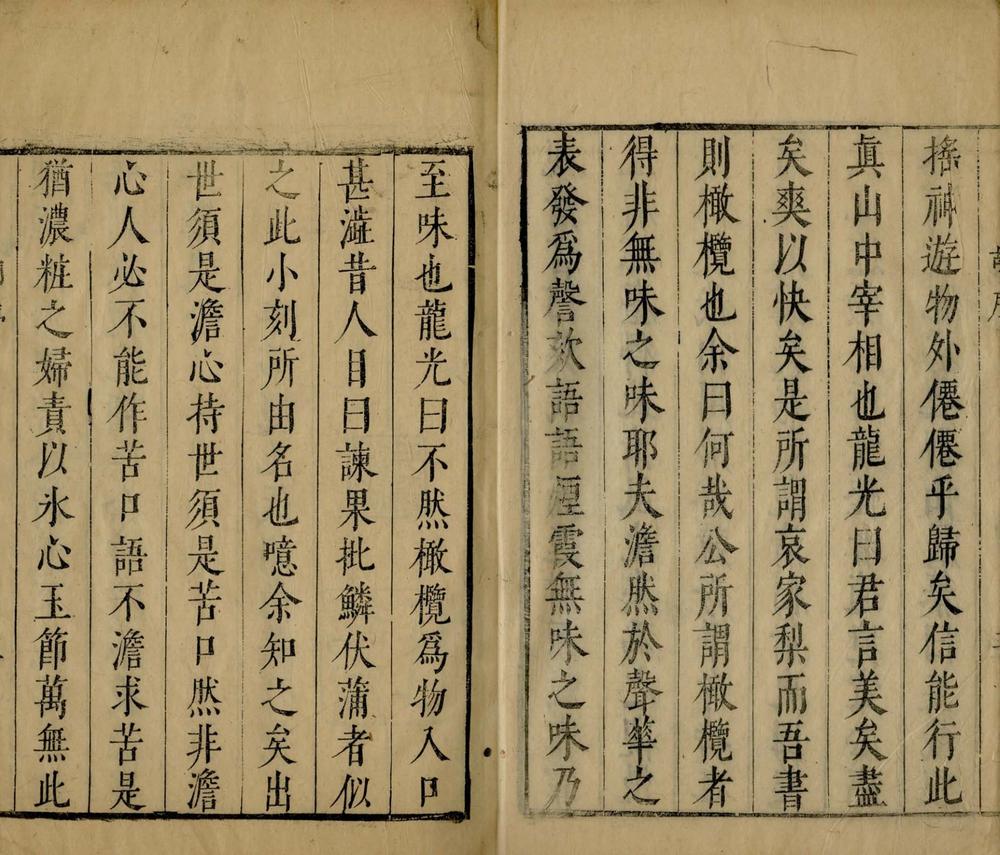 搖神遊物外僊僊乎歸矣信能行此
眞山中宰相也龍光曰君言美矣盡
矣爽以快矣是所謂哀家梨而吾書
則橄欖也余曰何哉公所謂橄欖者
得非無味之味耶夫澹然於聲華之
表發爲謦欬語語煙霞無味之味乃
至味也龍光曰不然橄欖爲物入口
甚澁昔人目曰諫果批鱗伏蒲者似
之此小刻所由名也噫余知之矣出
世須是澹心持世須是苦口然非澹
心人必不能作苦口語不澹求苦是
猶濃粧之婦責以氷心玉節萬無此